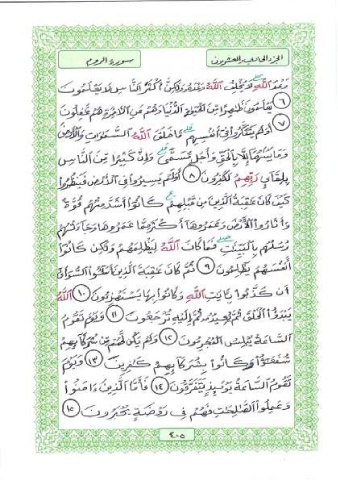 الجزء الحادي والعشرون سورة الروم
وَعْدَ اللَّهِ لَا يُخْلِفُ اللَّهُ وَعْدَهُ وَلَٰكِنَّ أَكْثَرَ النَّاسِ لَا يَعْلَمُونَ
٦ يَعْلَمُونَ ظَٰهِرًا مِنَ الْحَيَوٰةِ الدُّنْيَا وَهُمْ عَنِ الْآخِرَةِ هُمْ غَٰفِلُونَ
٧ أَوَلَمْ يَتَفَكَّرُوا فِي أَنْفُسِهِمْ مَا خَلَقَ اللَّهُ السَّمَٰوَٰتِ وَالْأَرْضَ
وَمَا بَيْنَهُمَا إِلَّا بِالْحَقِّ وَأَجَلٍ مُسَمًّى وَإِنَّ كَثِيرًا مِنَ النَّاسِ
بِلِقَآئِ رَبِّهِمْ لَكَٰفِرُونَ ٨ أَوَلَمْ يَسِيرُوا فِي الْأَرْضِ فَيَنْظُرُوا
كَيْفَ كَانَ عَٰقِبَةُ الَّذِينَ مِنْ قَبْلِهِمْ كَانُوا أَشَدَّ مِنْهُمْ قُوَّةً
وَأَثَارُوا الْأَرْضَ وَعَمَرُوهَا أَكْثَرَ مِمَّا عَمَرُوهَا وَجَآءَتْهُمْ
رُسُلُهُمْ بِالْبَيِّنَٰتِ فَمَا كَانَ اللَّهُ لِيَظْلِمَهُمْ وَلَٰكِنْ كَانُوا
أَنْفُسَهُمْ يَظْلِمُونَ ٩ ثُمَّ كَانَ عَٰقِبَةَ الَّذِينَ أَسَٰٓـُٔوا السُّوٓأَىٰ
أَنْ كَذَّبُوا بِـَٔايَٰتِ اللَّهِ وَكَانُوا بِهَا يَسْتَهْزِءُونَ ١٠ اللَّهُ
يَبْدَؤُا الْخَلْقَ ثُمَّ يُعِيدُهُ ثُمَّ إِلَيْهِ تُرْجَعُونَ ١١ وَيَوْمَ تَقُومُ
السَّاعَةُ يُبْلِسُ الْمُجْرِمُونَ ١٢ وَلَمْ يَكُنْ لَهُمْ مِنْ شُرَكَآئِهِمْ
شُفَعَٰٓؤُا وَكَانُوا بِشُرَكَآئِهِمْ كَٰفِرِينَ ١٣ وَيَوْمَ
تَقُومُ السَّاعَةُ يَوْمَئِذٍ يَتَفَرَّقُونَ ١٤ فَأَمَّا الَّذِينَ ءَامَنُوا
وَعَمِلُوا الصَّٰلِحَٰتِ فَهُمْ فِي رَوْضَةٍ يُحْبَرُونَ ١٥
٤٠٥